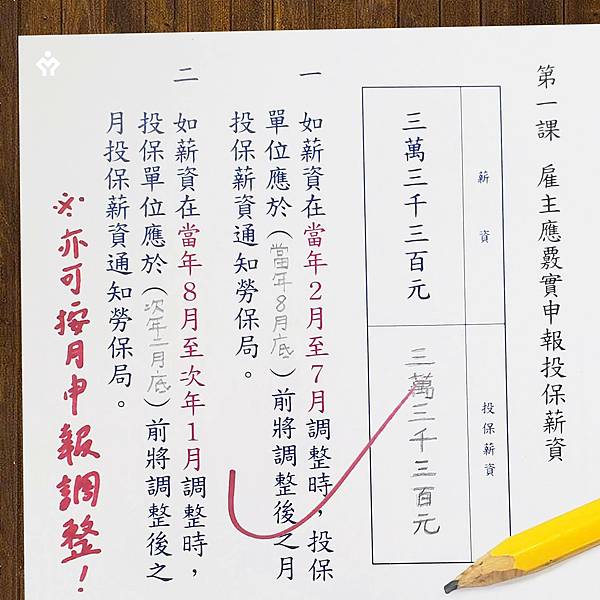 第一課 雇主應覈實申報投保薪資
薪資
三萬三千三百元
投保薪資
三萬三千三百元
一 如薪資在當年2月至7月調整時，投保
單位應於（當年8月底）前將調整後之月
投保薪資通知勞保局。
二 如薪資在當年8月至次年1月調整時，
投保單位應於（次年二月底）前將調整後之
月投保薪資通知勞保局。
※亦可按月申報調整！